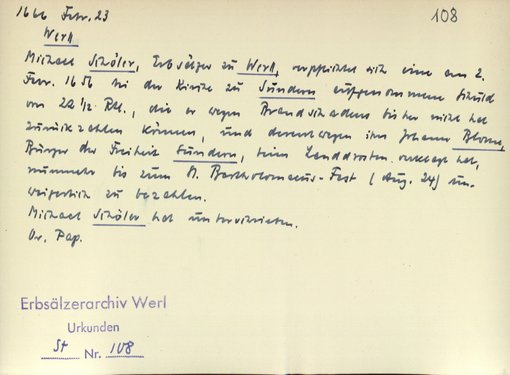 1666 Febr. 23
108
Werl
Michael Schöler, Erbsälzer zu Werl, verpflichtet sich eine am 2.
Febr. 1656 bei der Kirche zu Sundern aufgenommene Schuld
von 22 1/2 Rtl., die er wegen Brandschadens bisher nicht hat
zurückzahlen können, und derentwegen ihn Johann Blome,
Bürger der Freiheit Sundern, beim Landdrosten verklagt hat,
nunmehr bis zum St. Bartholomaeus-Fest (Aug. 24) un-
weigerlich zu bezahlen.
Michael Schöler hat unterschrieben.
Or. Pap.
Erbsälzerarchiv Werl
Urkunden
St Nr. 108